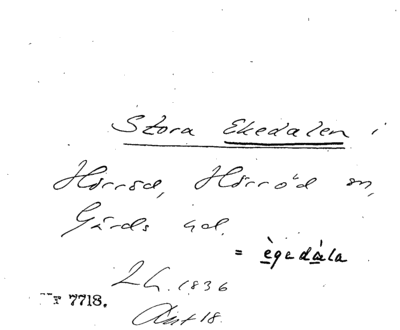 Stora Ekedalen i
Hörröd, Hörröd sn,
Gärds hd.
= ègedàla
L.L. 1836
Akt 18.
Nr 7718.